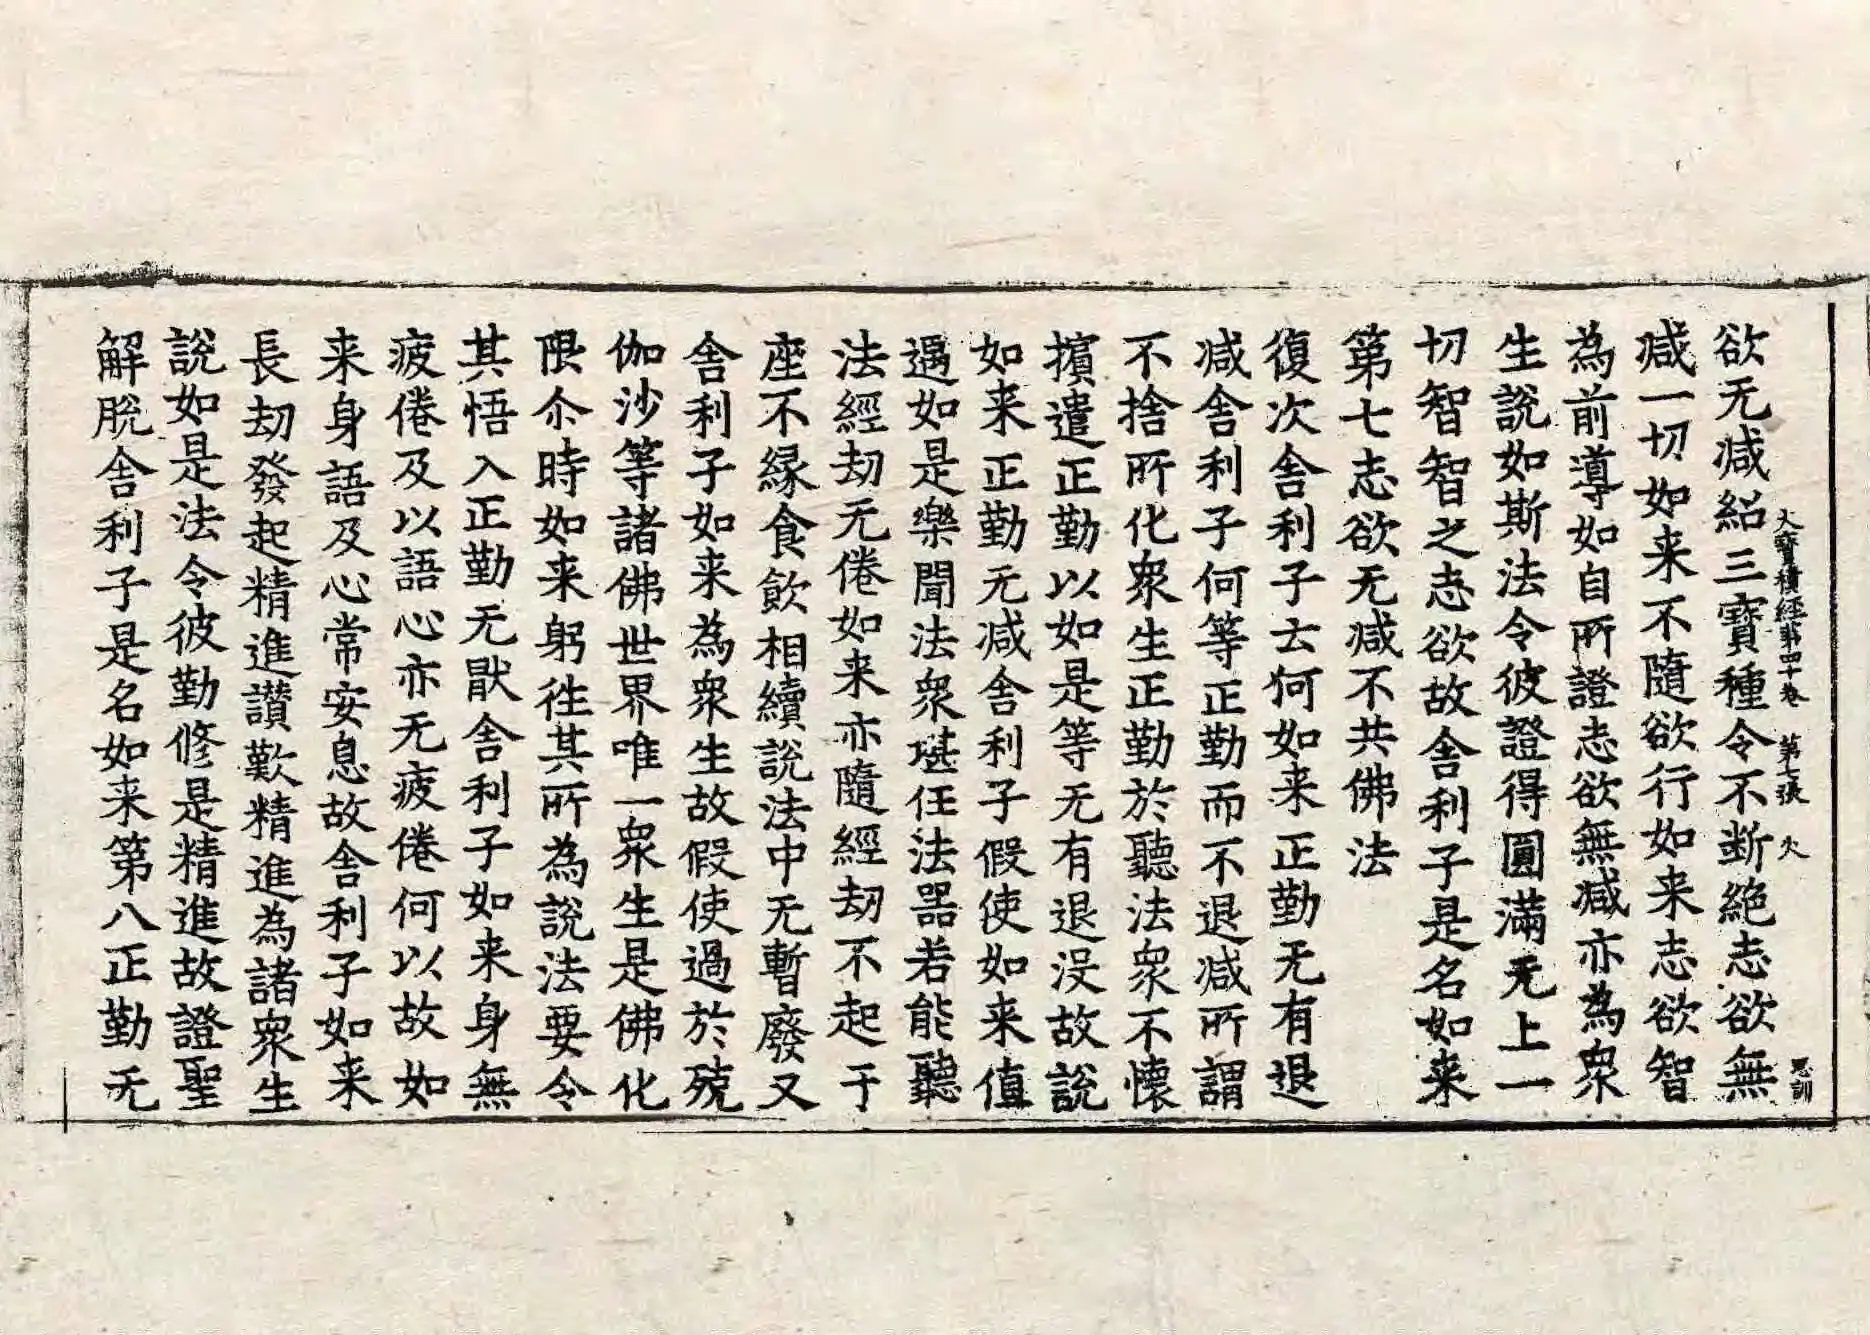 大寶積經第四十卷　第七張　火
思訓
欲无减紹三寶種令不断絶志欲無
减一切如来不隨欲行如来志欲智
為前導如自所證志欲無减亦為衆
生說如斯法令彼證得圓滿无上一
切智智之志欲故舎利子是名如来
第七志欲无减不共佛法
復次舎利子云何如来正勤无有退
减舎利子何等正勤而不退减所謂
不捨所化衆生正勤於聽法衆不懐
擯遣正勤以如是等无有退没故說
如来正勤无减舎利子假使如来值
遇如是樂聞法衆堪任法器若能聽
法經劫无倦如来亦隨經劫不起于
座不縁食飲相續說法中无暫廢又
舎利子如来為衆生故假使過於殑
伽沙等諸佛世界唯一衆生是佛化
限尒時如来躬往其所為說法要令
其悟入正勤无猒舎利子如来身無
疲倦及以語心亦无疲倦何以故如
来身語及心常安息故舎利子如来
長劫發起精進讃歎精進為諸衆生
說如是法令彼勤修是精進故證聖
解脫舎利子是名如来第八正勤无